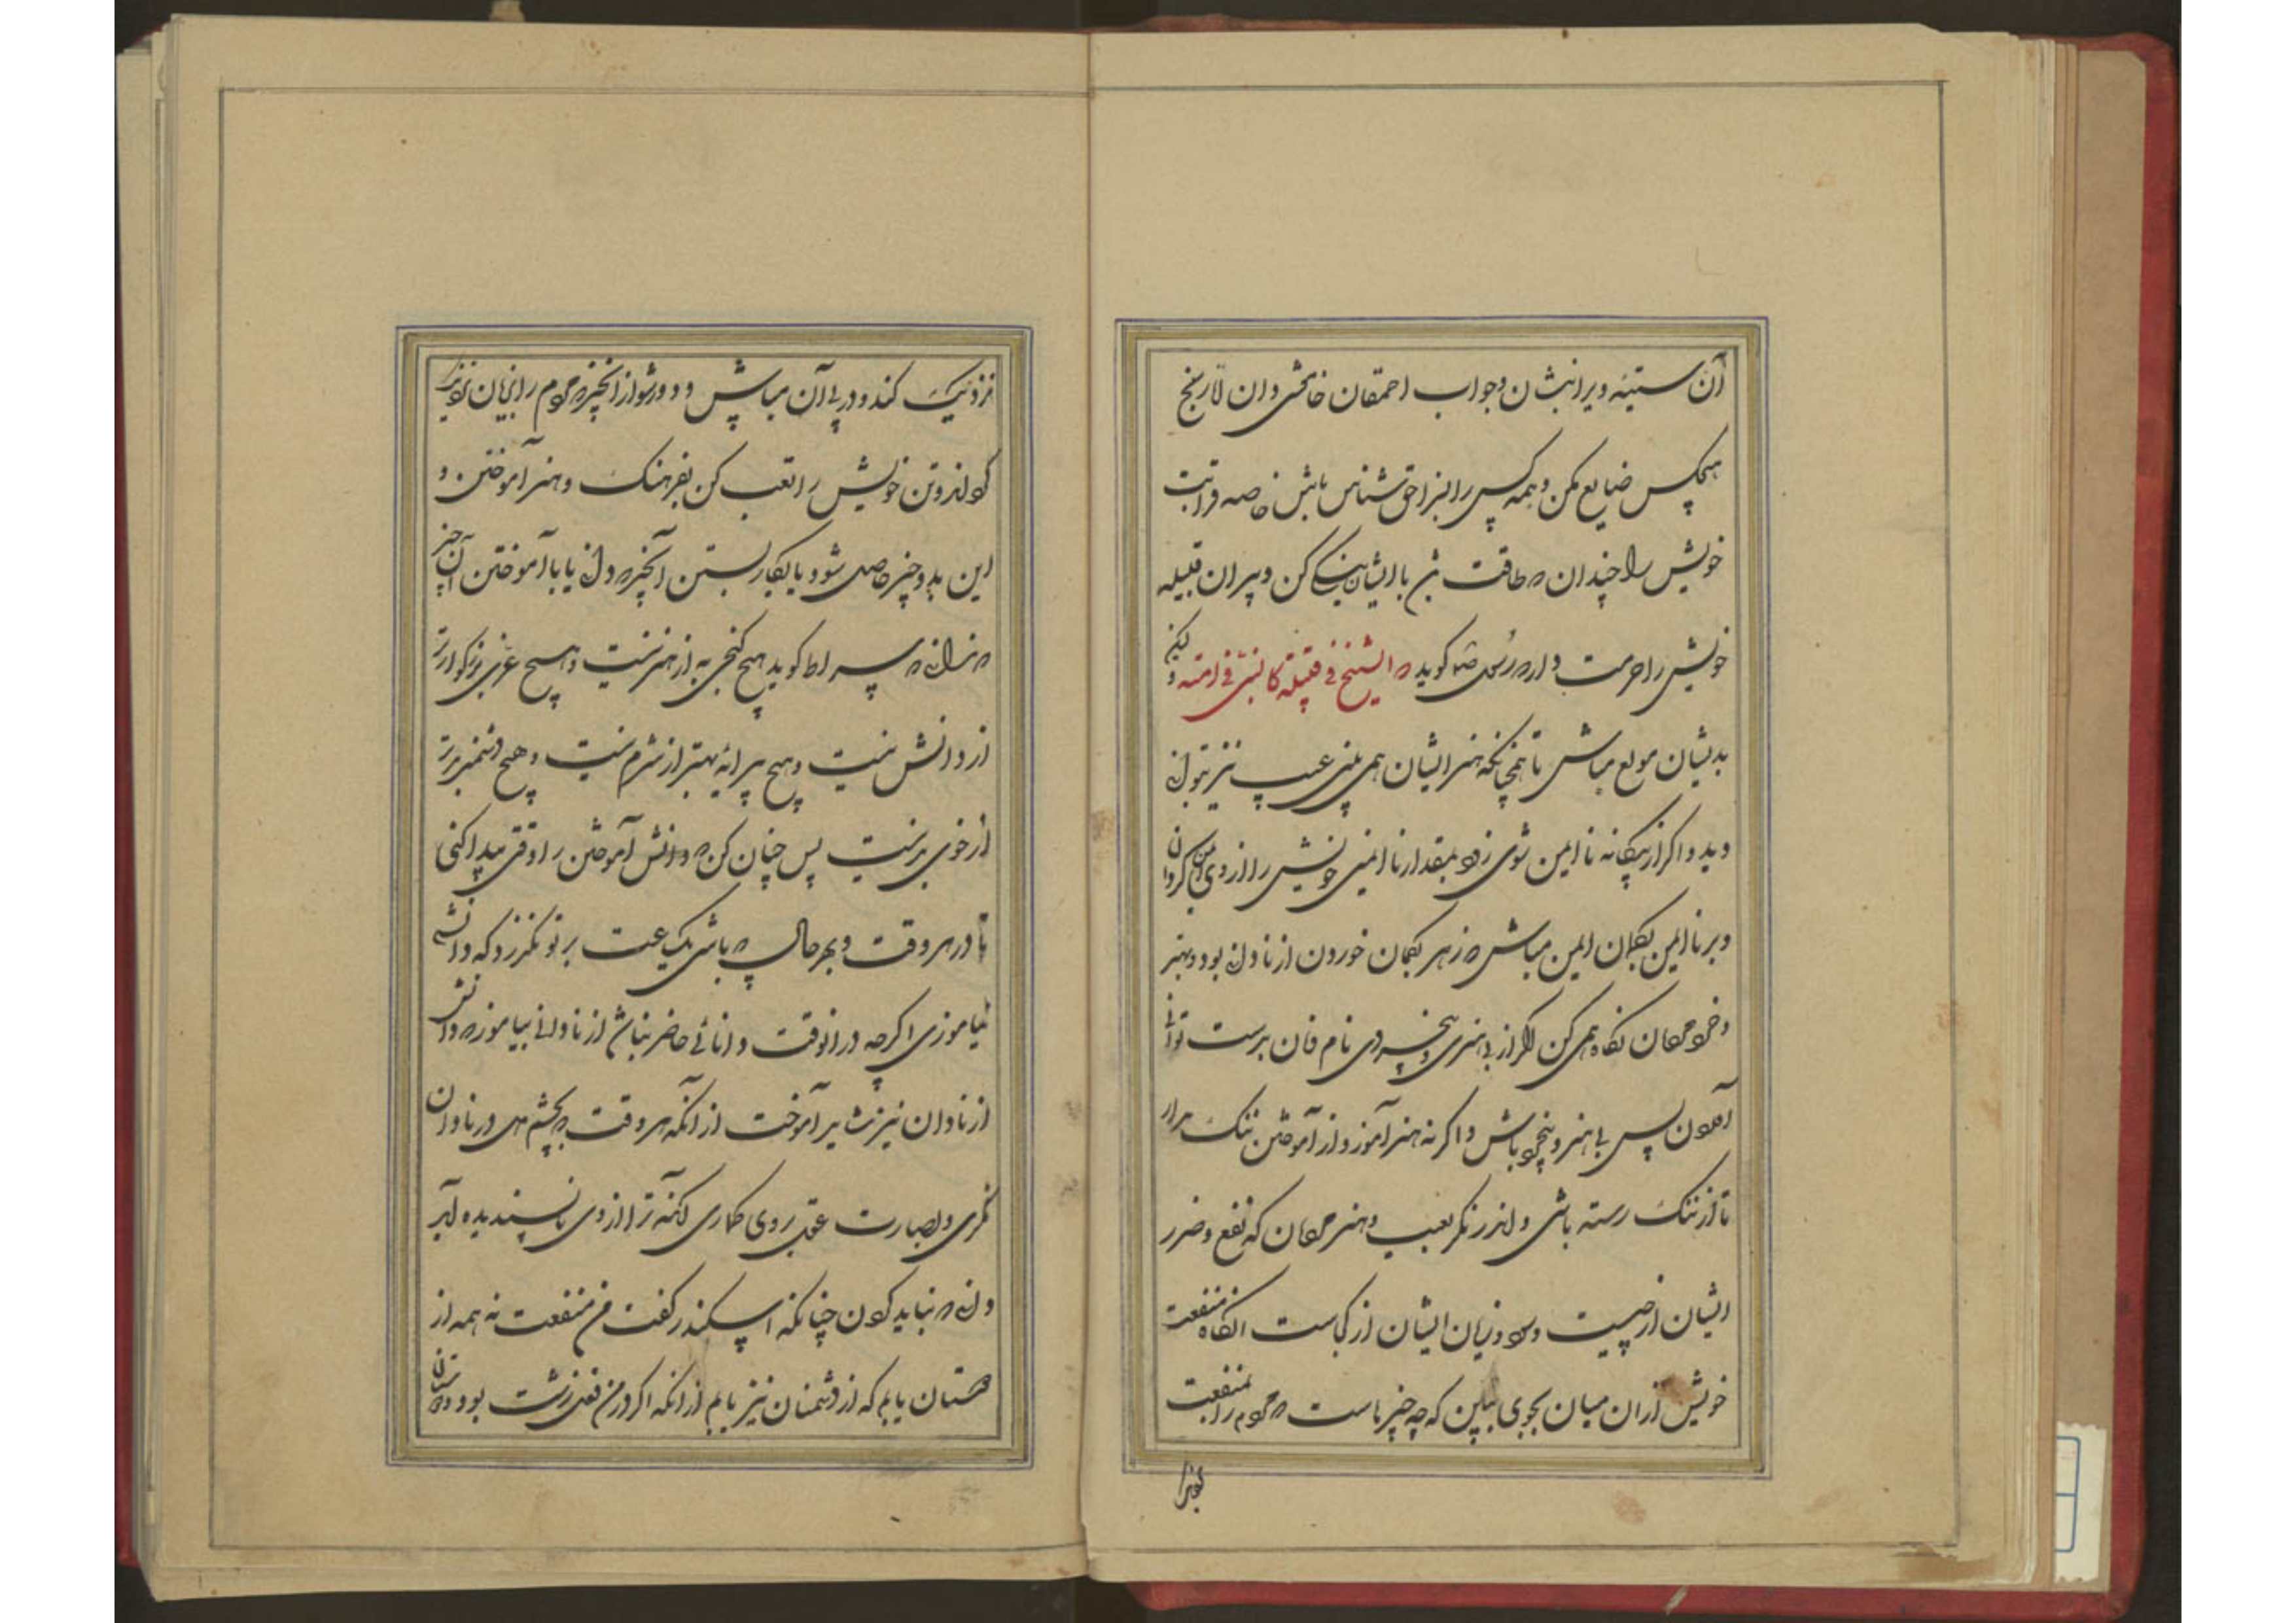 آن ستیزه ویرا بنشان و جواب احمقان خامشی دان اما رنج
هیچکس ضایع مکن و همه کس را بسزا حق شناس باش خاصه قرابت
خویش را چندان که طاقت باشد با ایشان نیکی کن و پیران قبیله
خویش را حرمت دار که رسول گوید که الشیخ فی قبیلة کالنبی فی امته و لیکن
بدیشان مولع مباش تا همچنانکه هنر ایشان همی بینی عیب نیز بتوانی
دید و اگر از بیگانه ناایمن شوی زود بمقدار ناایمنی خویش را از وی ایمن گردان
و بر ناایمن بگمان ایمن مباش که زهر بگمان خوردن از نادانی بود و بهنر
و خرد مردمان نگاه همی کن اگر از بی هنری و بیخردی نام و نان بدست توانی
آوردن پس بی هنر و بیخرد باش و اگر نه هنر آموز و از آموختن ننگ مدار
تا از ننگ رسته باشی و اندر نگر بعیب و هنر مردمان که نفع و ضرر
ایشان از چیست و سود و زیان ایشان از کجاست آنگاه منفعت
خویش از آن میان بجوی ببین که چه چیزهاست که مردم را بمنفعت
نزدیک کند و در پی آن میباش و دور شو از آنچیز که مردم را بزیان نزدیک
گرداند و تن خویش را تعب کن بفرهنگ و هنر آموختن و
این بدو چیز حاصل شود یا بکار بستن آنچیز که دانی یا با آموختن آن چیز
که ندانی که سقراط گوید هیچ گنجی به از هنر نیست و هیچ عزی بزرگوارتر
از دانش نیست و هیچ پیرایه بهتر از شرم نیست و هیچ دشمن بدتر
از خوی بد نیست پس چنان کن که دانش آموختن را وقتی پیدا کنی
تا در هر وقت و بهر حال که باشی یک ساعت بر تو نگذرد که دانشی
نیاموزی اگرچه در آنوقت دانائی حاضر نباشد از نادانی بیاموز که دانش
از نادان نیز بباید آموخت از آنکه هر وقت که بچشم دل در نادان
نگری و بصارت عقل بروی گماری آنچه ترا از وی ناپسندیده آید
دانی که نباید کردن چنانکه اسکندر گفت من منفعت نه همه از
دوستان یابم که از دشمنان نیز یابم از آنکه اگر در من فعلی زشت بود دوستان